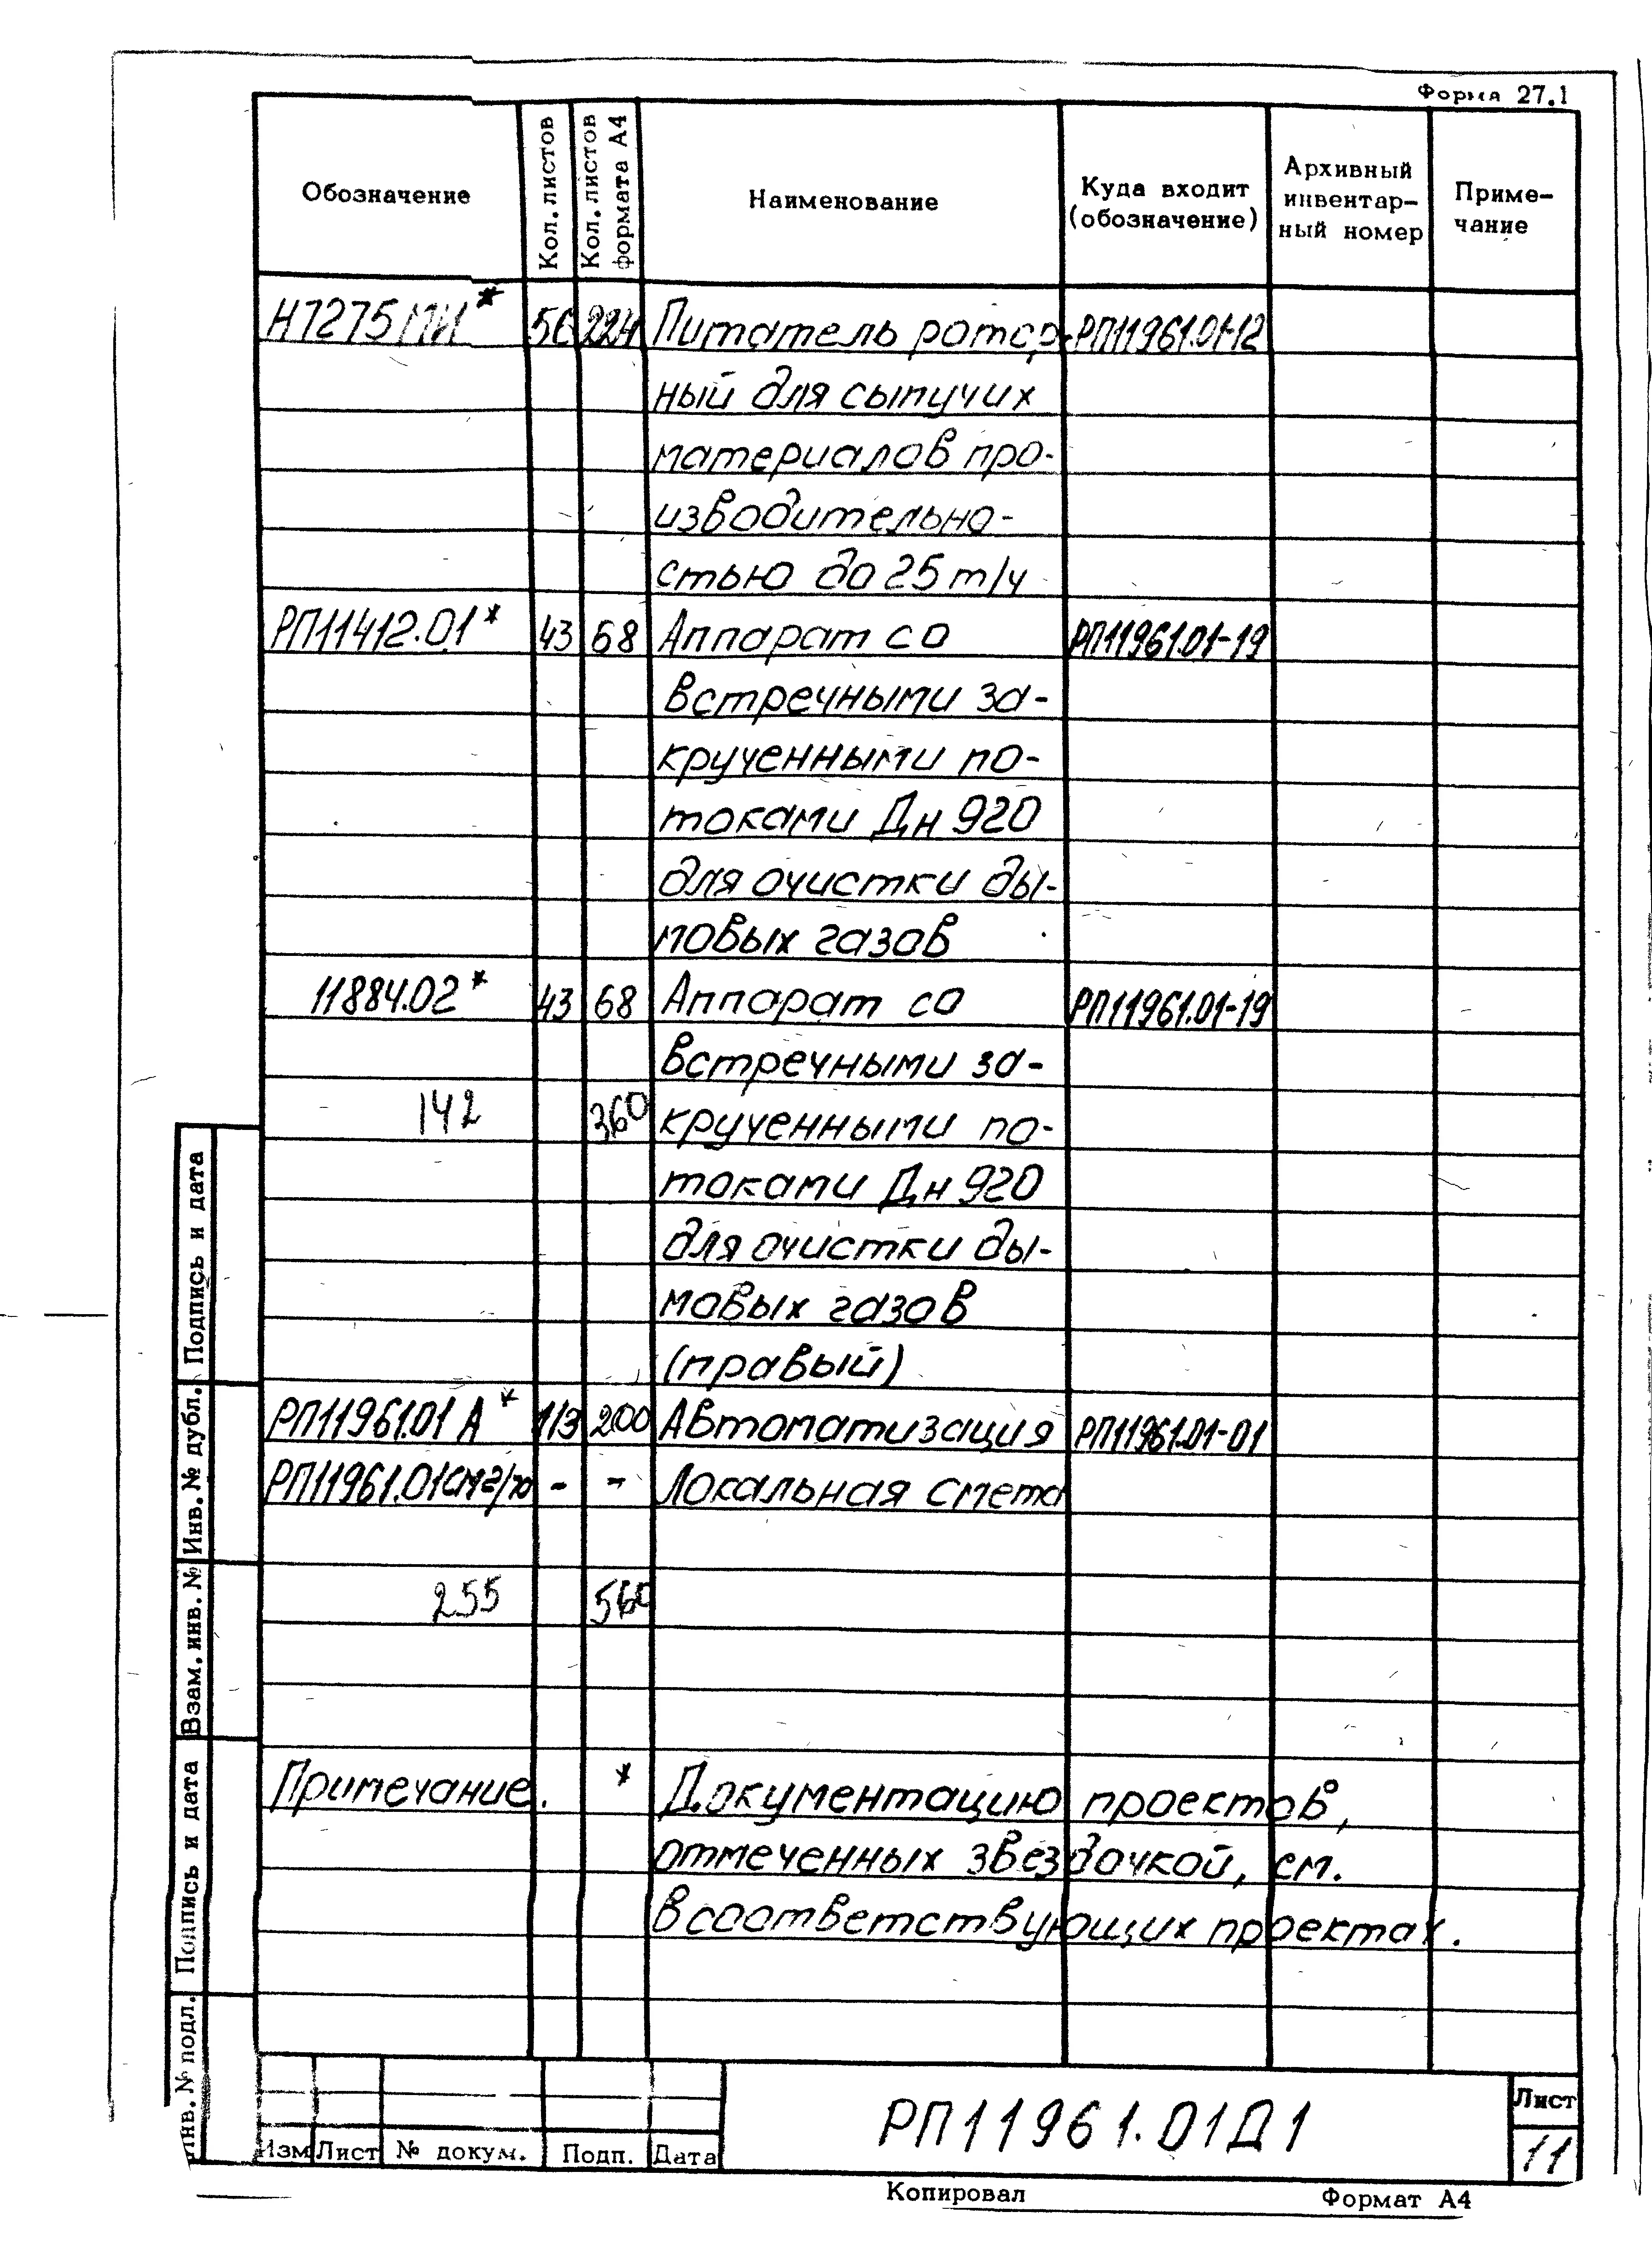 Форма 27.1
Обозначение
Кол. листов
Кол. листов формата А4
Наименование
Куда входит (обозначение)
Архивный инвентар- ный номер
Приме- чание
Н7275МИ* 56 224 Питатель ротор- РП11961.01-12
ный для сыпучих
материалов про-
изводительно-
стью до 25 т/ч
РП11412.01* 43 68 Аппарат со РП11961.01-19
встречными за-
крученными по-
токами Дн 920
для очистки ды-
мовых газов
11884.02* 43 68 Аппарат со РП11961.01-19
встречными за-
142 360 крученными по-
токами Дн 920
для очистки ды-
мовых газов
(правый)
РП11961.01 А* 113 200 Автоматизация РП11961.01-01
РП11961.01 - - Локальная смета
255 560
Примечание. * Документацию проектов,
отмеченных звездочкой, см.
в соответствующих проектах.
Подпись и дата
Инв. № дубл.
Взам. инв. №
Подпись и дата
Инв. № подл.
Изм Лист № докум. Подп. Дата
РП11961.01Д1
Лист
11
Копировал Формат А4